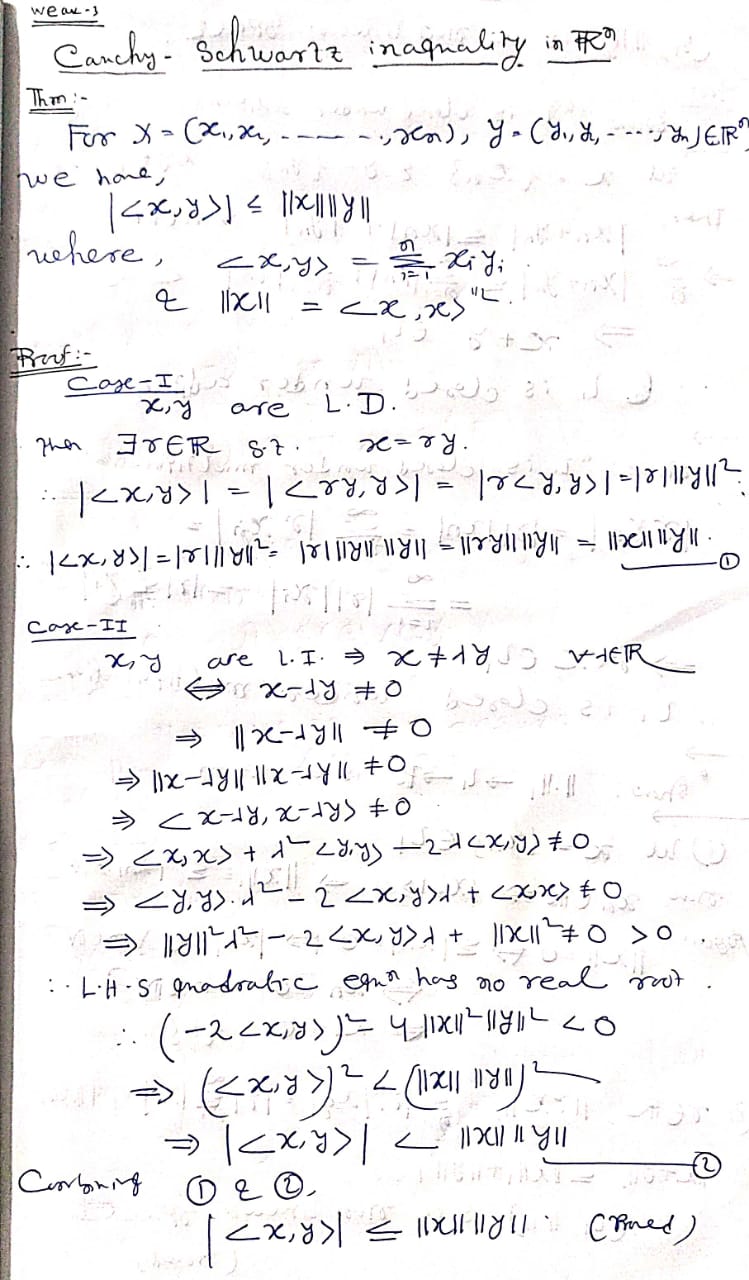 weak-3
Cauchy-Schwartz inaquality in ℝⁿ
Thm:-
For x = (x₁, x₂, ------, xn), y = (y₁, y₂, ----, yn) ∈ ℝⁿ
we have,
|<x,y>| ≤ ||x|| ||y||
where, <x,y> = Σᵢ₌₁ⁿ xᵢ yᵢ
& ||x|| = <x,x>^1/2.
Proof:-
Case-I
x,y are L.D.
Then ∃ r∈ℝ s.t. x = ry.
∴ |<x,y>| = |<ry,y>| = |r<y,y>| = |r| ||y||².
∴ |<x,y>| = |r| ||y||² = |r| ||y|| ||y|| = ||ry|| ||y|| = ||x|| ||y||. ①
Case-II
x,y are L.I. ⇒ x ≠ λy ∀ λ∈ℝ
⇔ x-λy ≠ 0
⇒ ||x-λy|| ≠ 0
⇒ ||x-λy|| ||x-λy|| ≠ 0
⇒ <x-λy, x-λy> ≠ 0
⇒ <x,x> + λ² <y,y> - 2λ<x,y> ≠ 0
⇒ <y,y>.λ² - 2<x,y>λ + <x,x> ≠ 0
⇒ ||y||²λ² - 2<x,y>λ + ||x||² ≠ 0 > 0
∴ L.H.S quadratic equn has no real root.
∴ (-2<x,y>)² = 4||x||²||y||² < 0
⇒ (<x,y>)² < (||x|| ||y||)²
⇒ |<x,y>| < ||x|| ||y|| ②
Combining ① & ②,
|<x,y>| ≤ ||x|| ||y||. (Proved)